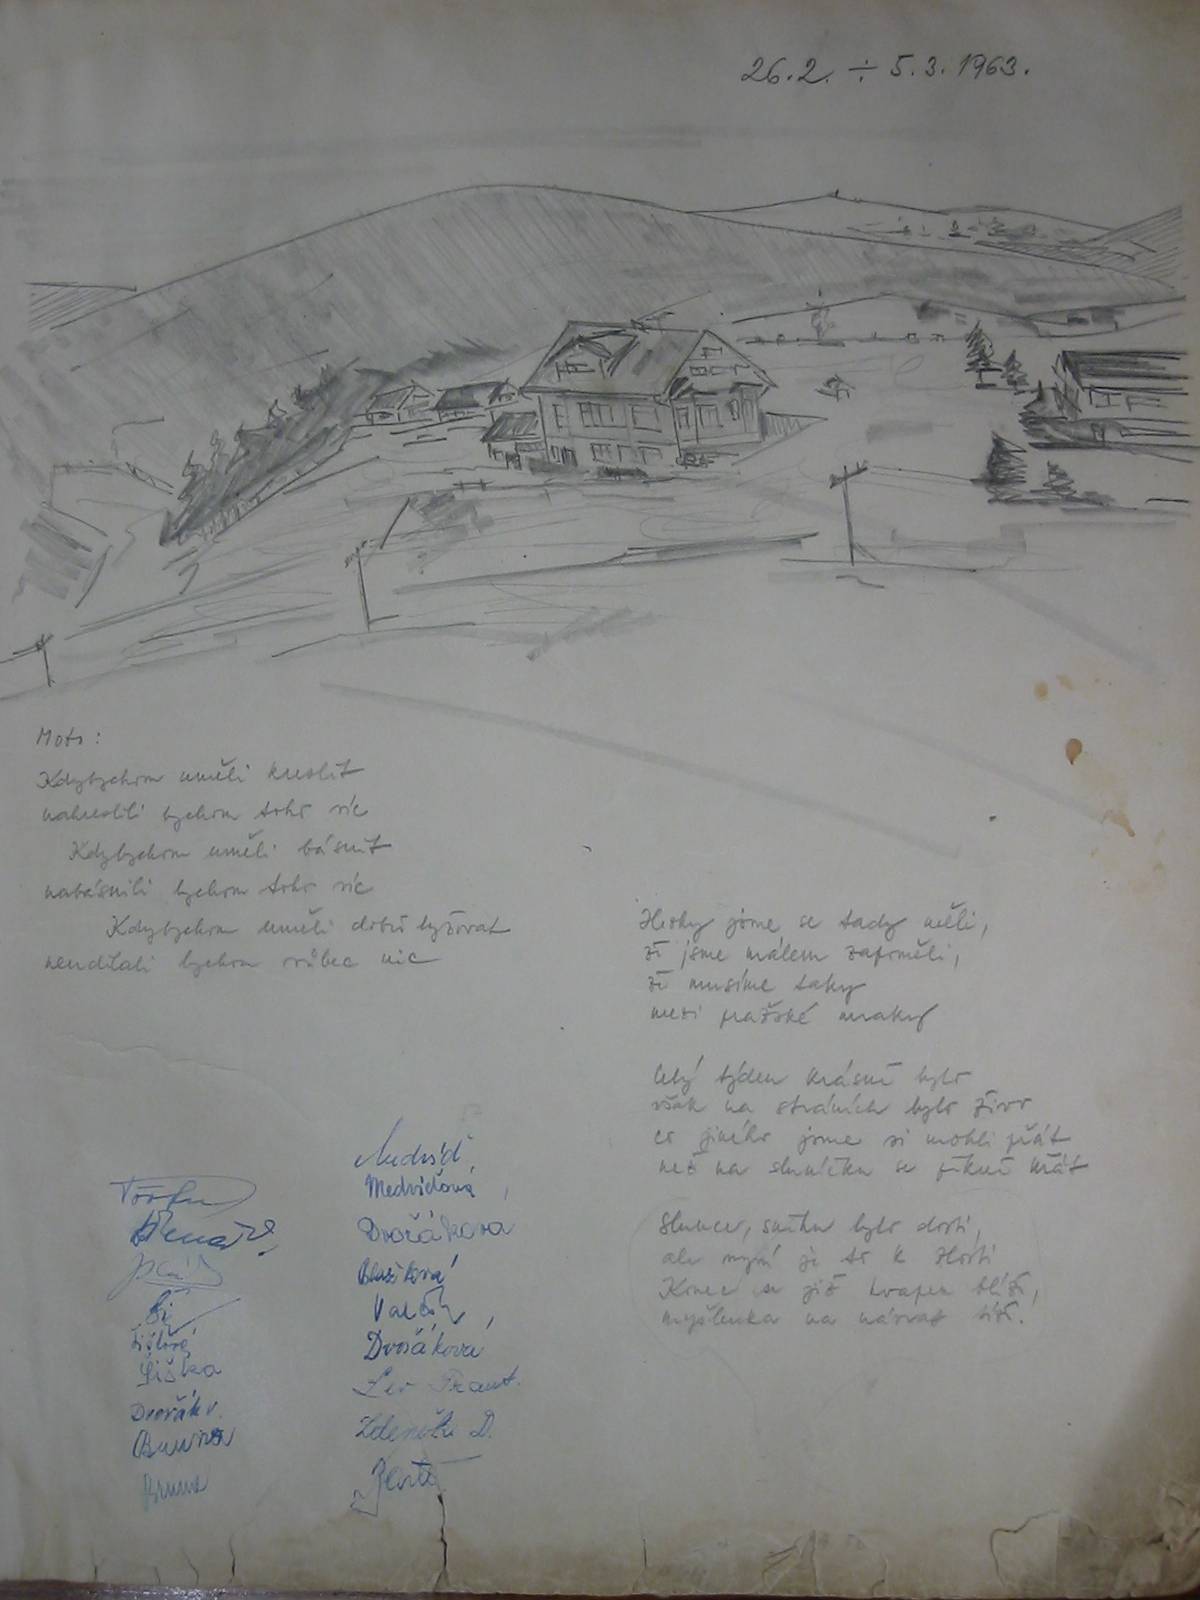 26.2. ÷ 5.3.1963.
Moto:
Kdybychom uměli kreslit
nakreslili bychom toho víc
Kdybychom uměli básnit
nabásnili bychom toho víc
Kdybychom uměli dobře lyžovat
neudělali bychom vůbec nic
Hezky jsme se tady měli,
že jsme málem zapoměli,
že musíme taky
mezi pražské mraky
Celý týden krásně bylo
však na stráních bylo živo
co jiného jsme si mohli přát
než na sluníčku se pěkně hřát
Slunce, sněhu bylo dosti,
ale nyní je to k zlosti
Konec se již kvapem blíží,
myšlenka na návrat tíží.
Šiška
Dvořák
Bruna
Medvěd,
Medvěďová,
Dvořáková
Blažková
Dvořáková
Lev Frant.
Zdeněk D.